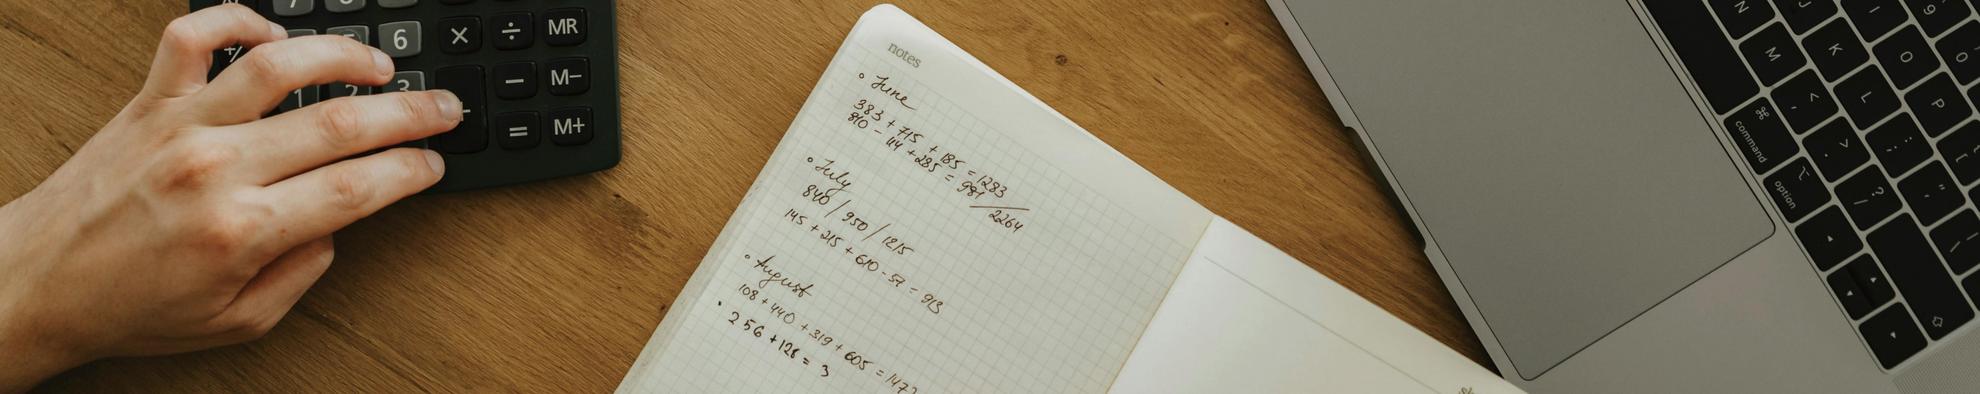 6 × ÷ MR
1 2 3 − M−
+ = M+
notes
June
383 + 715 + 185 = 1283
810 - 114 + 285 = 981
2264
July
840 / 950 / 1215
145 + 215 + 610 - 57 = 913
August
108 + 440 + 319 + 605 = 147
256 + 128 = 3
N J I 9
M K O 0
, < L P
command ⌘ . > ; : [ {
option ⌥ / ? ' "